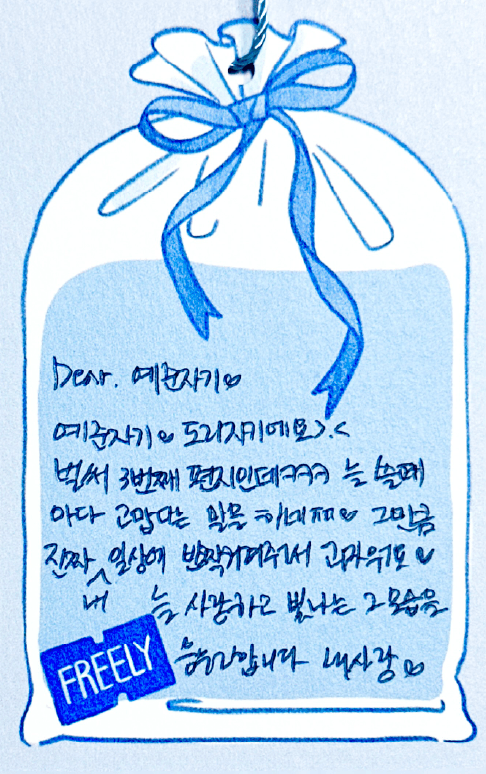 Dear. 예준자기♡
예준자기♡ 도리자기에요>.<
벌써 3번째 편지인데ㅋㅋㅋ 늘 쓸때
마다 고맙다는 말을 하네ㅠㅠ♡ 그만큼
진짜 내 일상에 반짝거려주어서 고마워요♡
늘 사랑하고 빛나는 그 모습을
응원합니다 내사랑♡
FREELY